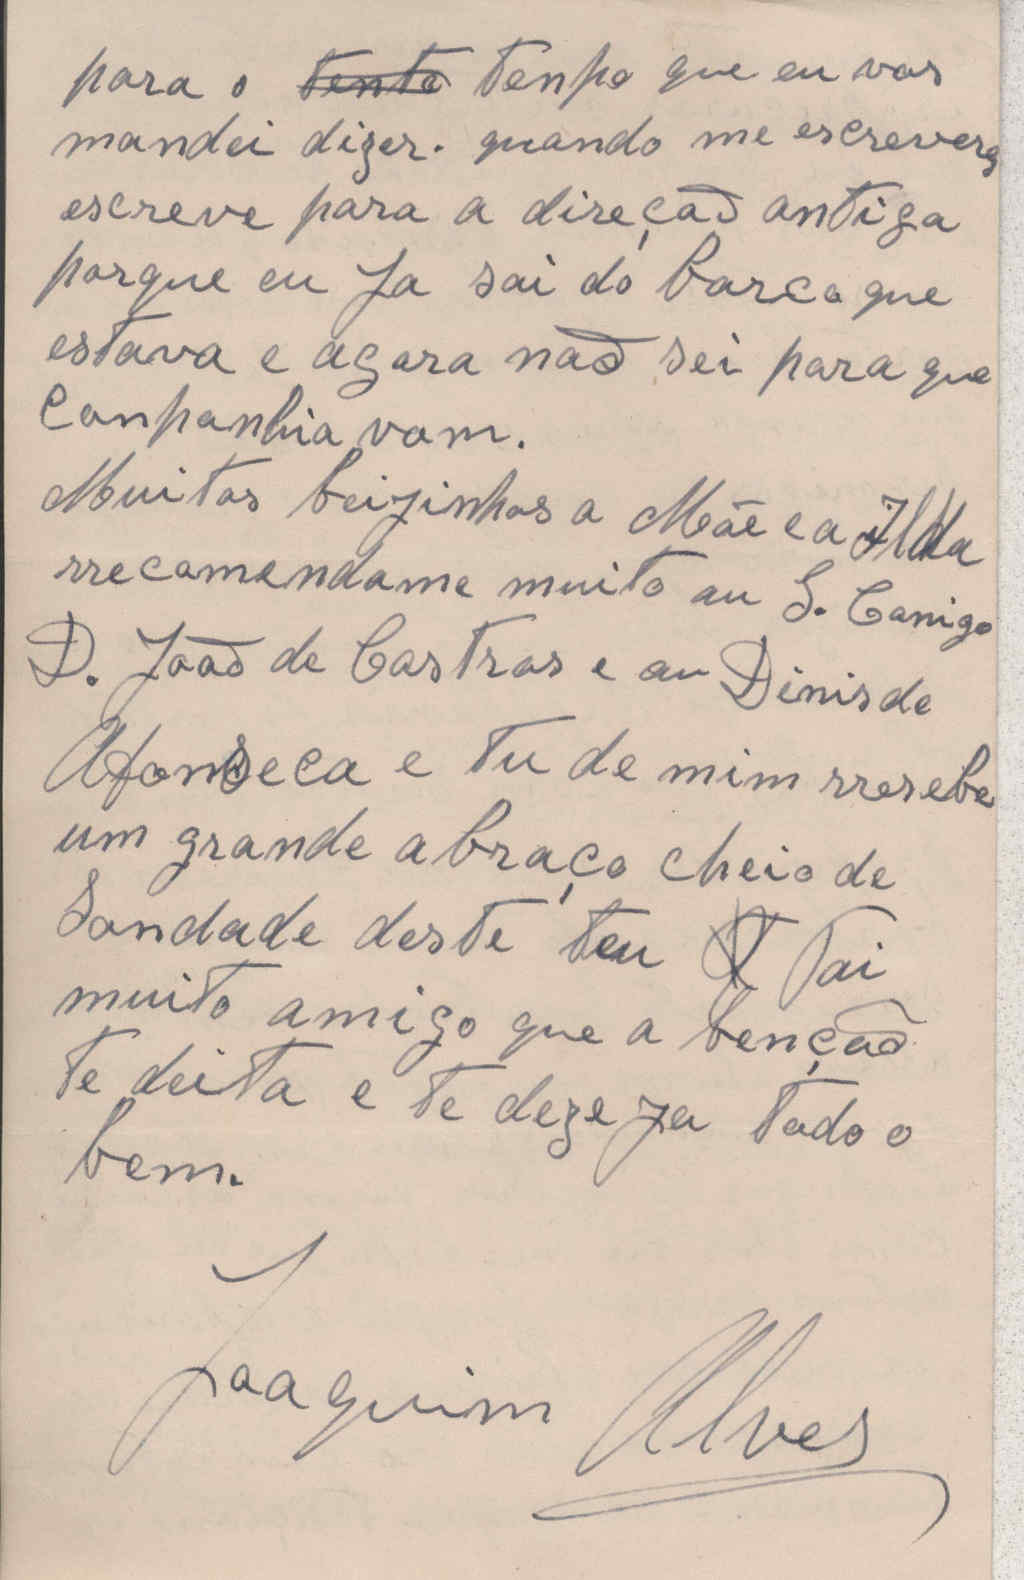 para o tento tenpo que eu vos
mandei dizer. quando me escreveres
escreve para a direçaõ antiga
porque eu Ja sai do barco que
estava e agora naõ sei para que
Conpanhia vom.
Muitos beijinhos a Mãe e a Ilda
rrecomendame muito au S. Conigo
D. Joaõ de Castros e au Dinis de
Afonseca e tu de mim rresebe
um grande abraço cheio de
Soudade deste teu Pai
muito amigo que a bençaõ
te deita e te dezeja todo o
bem.
Joaquim Alves